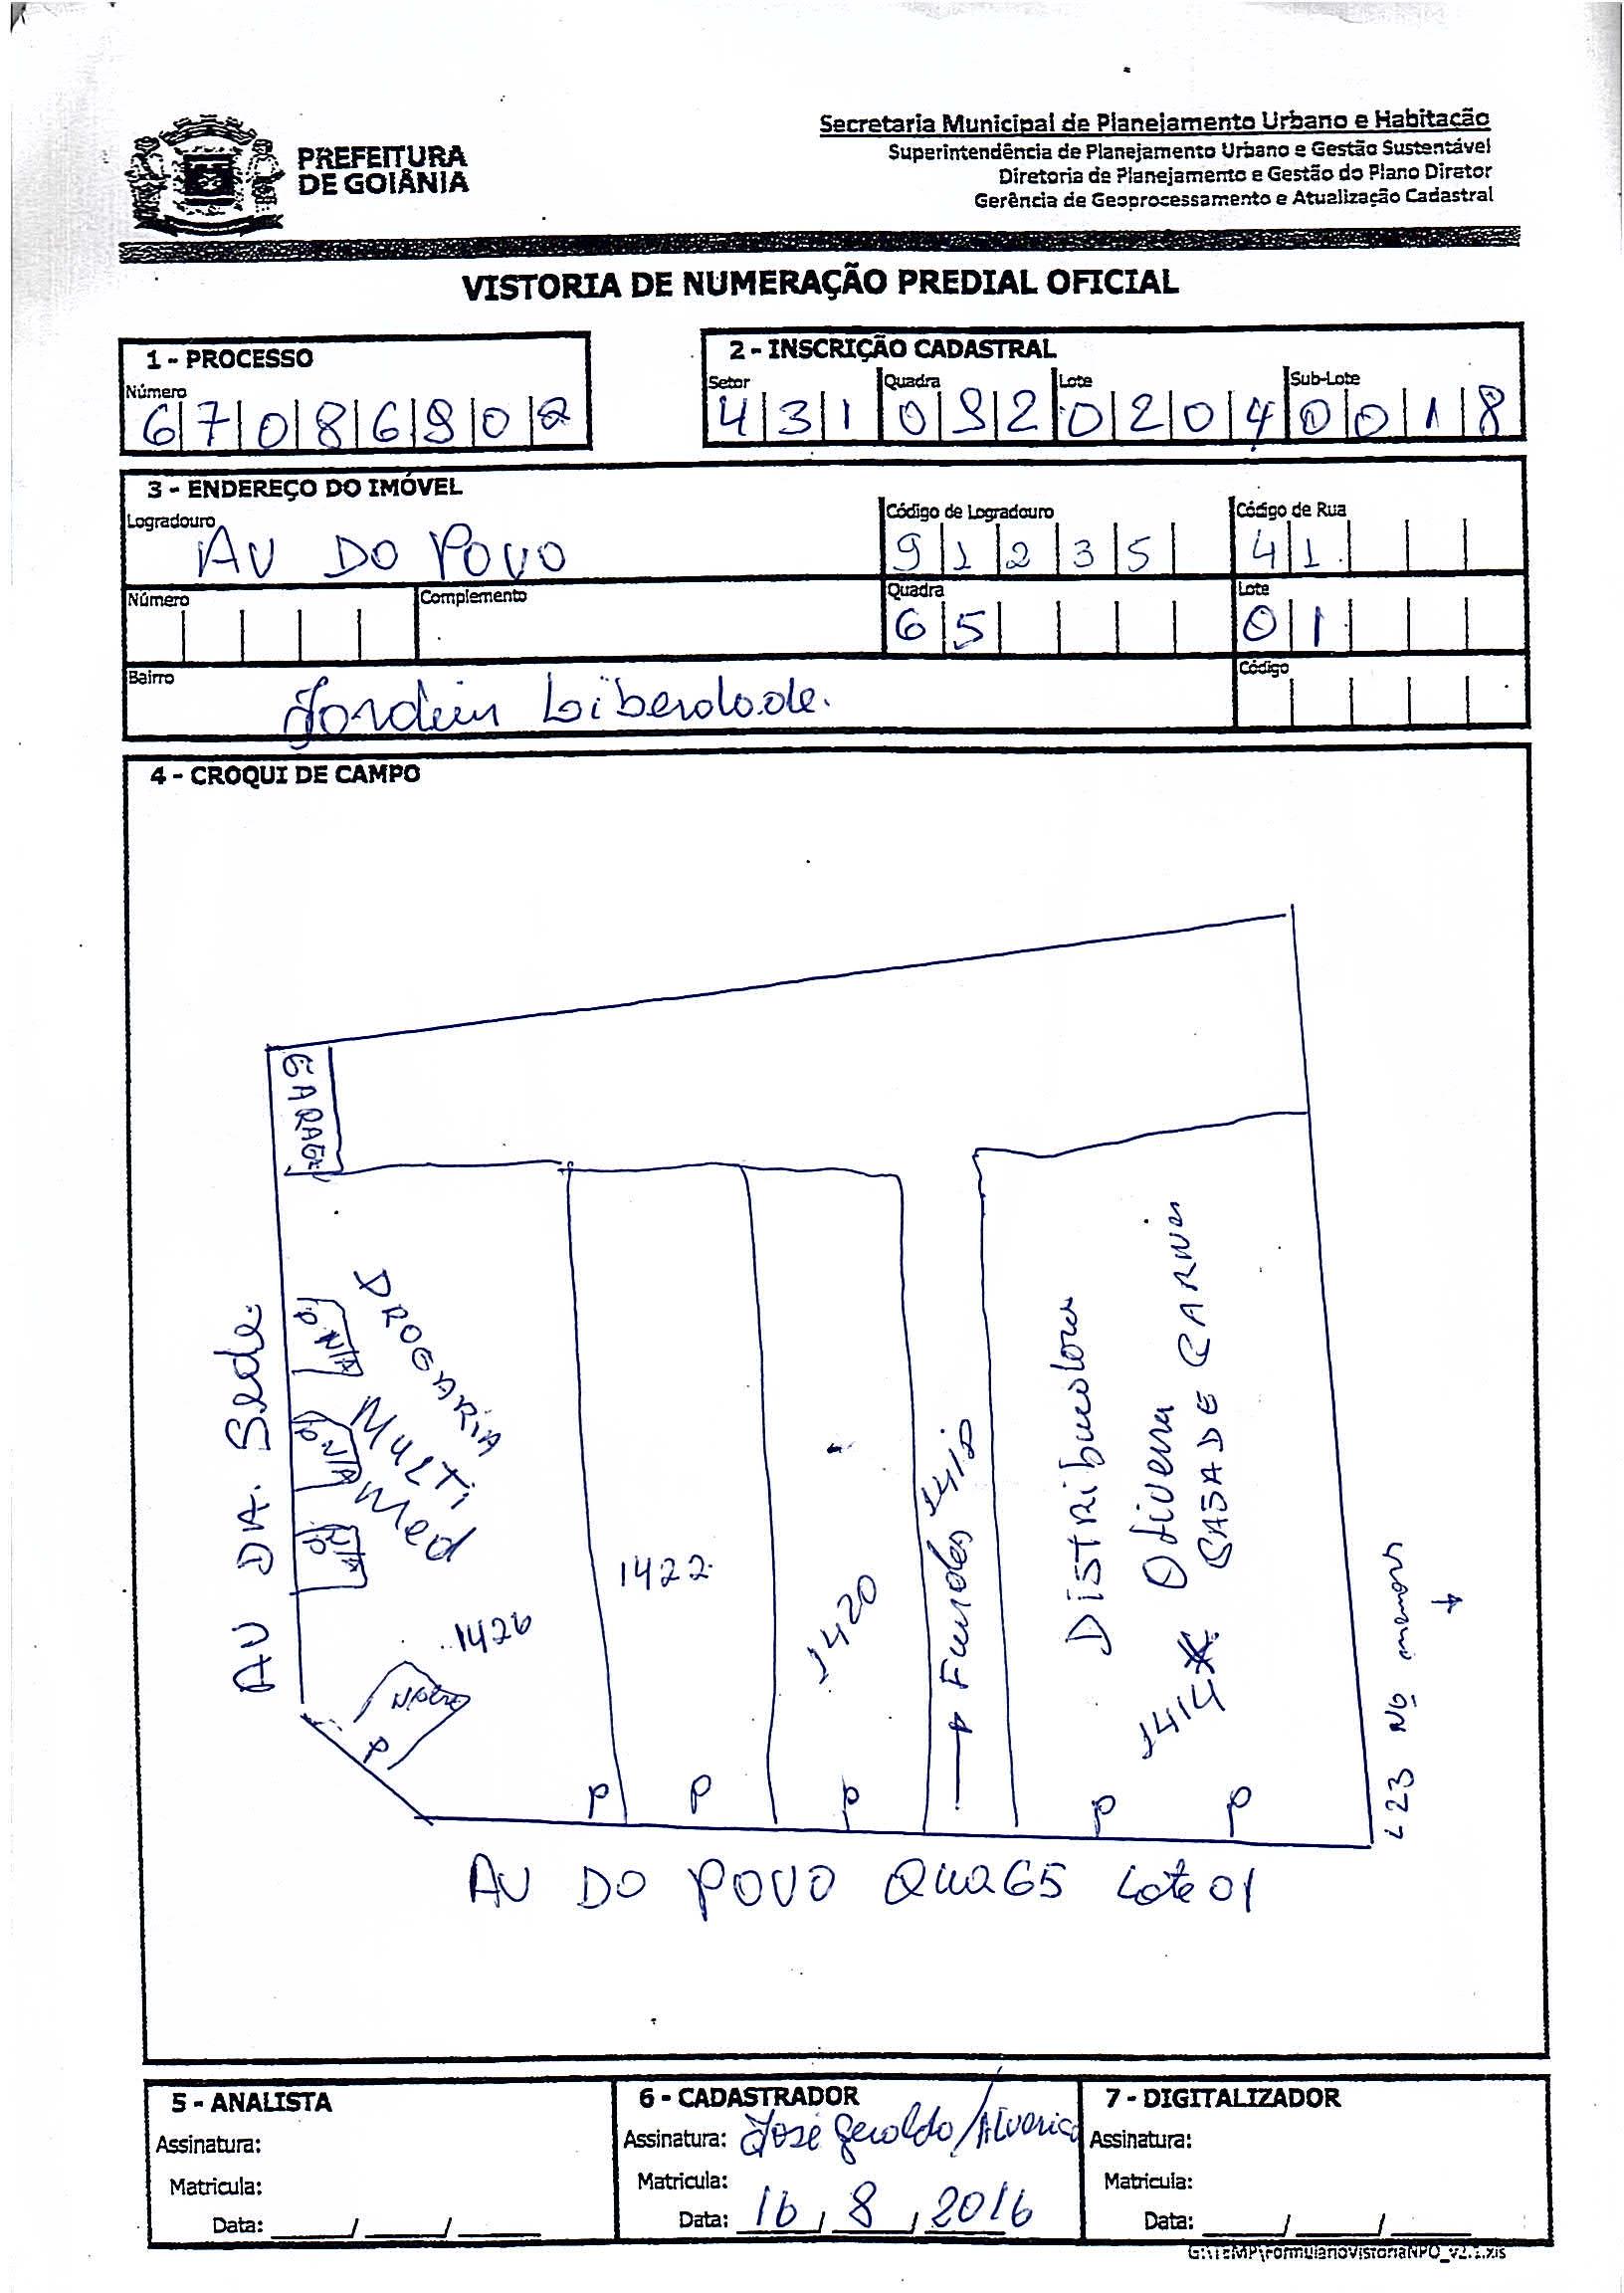 PREFEITURA
DE GOIÂNIA
Secretaria Municipal de Planejamento Urbano e Habitação
Superintendência de Planejamento Urbano e Gestão Sustentável
Diretoria de Planejamento e Gestão do Plano Diretor
Gerência de Geoprocessamento e Atualização Cadastral
VISTORIA DE NUMERAÇÃO PREDIAL OFICIAL
1 - PROCESSO
Número
67086902
2 - INSCRIÇÃO CADASTRAL
Setor Quadra Lote Sub-Lote
431 092 0204 0018
3 - ENDEREÇO DO IMÓVEL
Logradouro Código de Logradouro Código de Rua
AV DO POVO 91235 41
Número Complemento Quadra Lote
65 01
Bairro Código
Jardim Liberdade.
4 - CROQUI DE CAMPO
GARAGE
AV DA. Sede.
DROGARIA
MULTI
Med
P N/A
P N/A
P N/A
1426
P
1422
1420
Fundos
Distribuidora
Oliveira
CASA DE CARNES
1414
L 23 No menor
P P P P P
AV DO POVO QUA 65 Lote 01
5 - ANALISTA
Assinatura:
Matricula:
Data: ___/___/___
6 - CADASTRADOR
Assinatura: José Geraldo /
Matricula:
Data: 16 / 8 / 2016
7 - DIGITALIZADOR
Assinatura:
Matricula:
Data: ___/___/___
G:\TEMP\FormularioVistoriaNPO_v2.1.xls